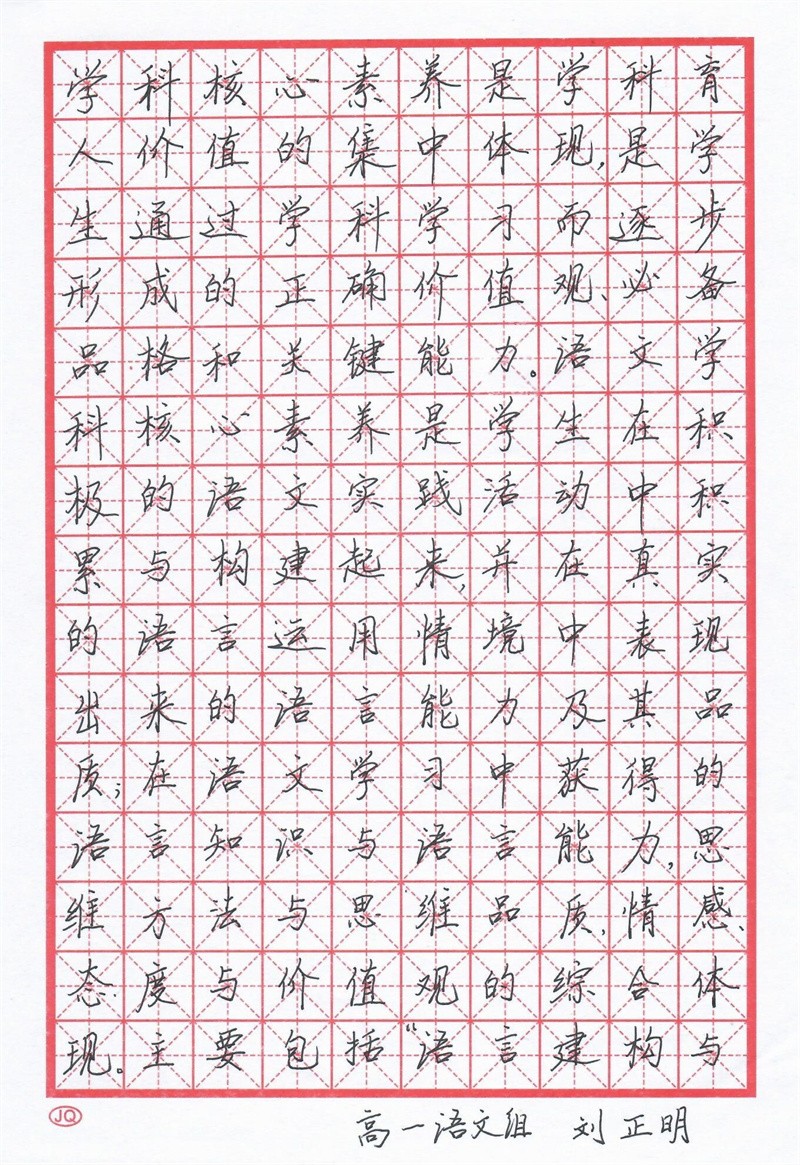 学科核心素养是学科育
人价值的集中体现,是学
生通过学科学习而逐步
形成的正确价值观、必备
品格和关键能力。语文学
科核心素养是学生在积
极的语文实践活动中积
累与构建起来,并在真实
的语言运用情境中表现
出来的语言能力及其品
质;在语文学习中获得的
语言知识与语言能力,思
维方法与思维品质,情感、
态度与价值观的综合体
现。主要包括“语言建构与
JQ
高一语文组 刘正明